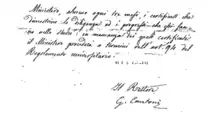 Ministero, almeno ogni tre mesi, i certificati che
dimostrino la diligenza ed i progressi che gli
nello studio, in mancanza dei quali certificati
il Ministro provvederà a termini dell'art. 94 del
Regolamento universitario.
Il Rettore
G. Cantoni